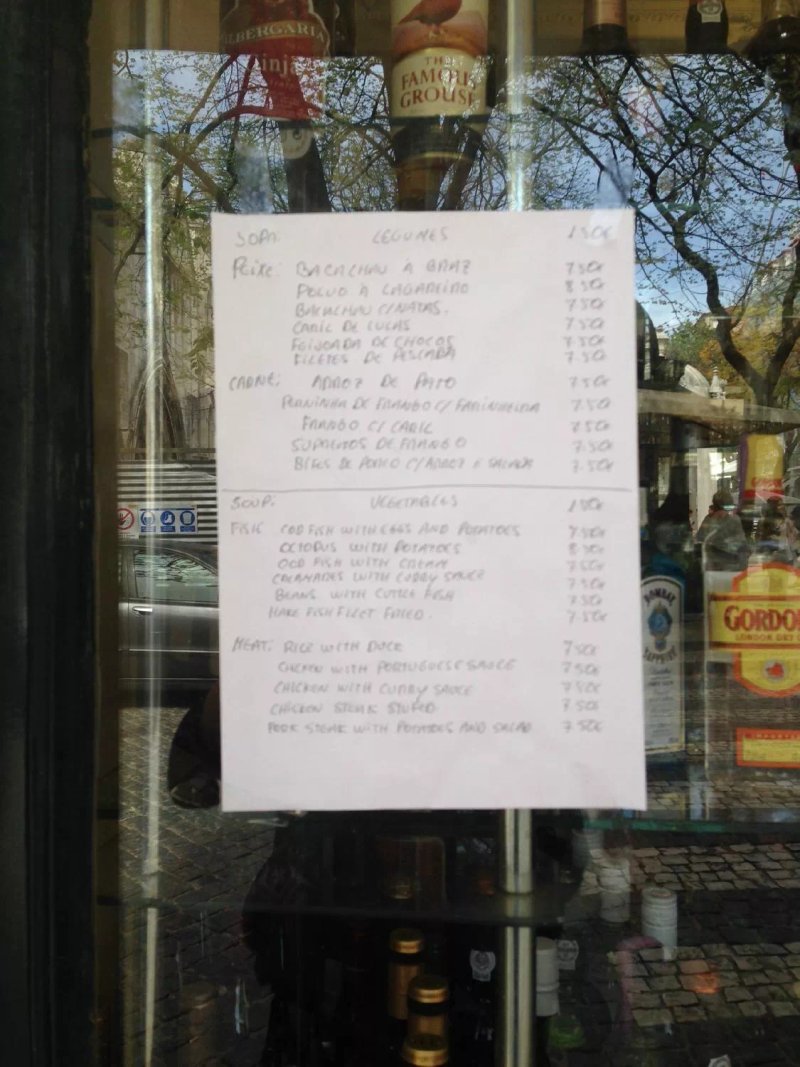 ALBERGARIA
Ginja
THE
FAMOUS
GROUSE
SOPA: LEGUMES 1.50€
PEIXE: BACALHAU À BRAZ 7.50€
POLVO À LAGAREIRO 8.50€
BACALHAU C/NATAS. 7.50€
CARIL DE LULAS 7.50€
FEIJOADA DE CHOCOS 7.50€
FILETES DE PESCADA 7.50€
CARNE: ARROZ DE PATO 7.50€
PERNINHA DE FRANGO C/ FARINHEIRA 7.50€
FRANGO C/ CARIL 7.50€
SUPREMOS DE FRANGO 7.50€
BIFES DE PORCO C/ARROZ E SALADA 7.50€
SOUP: VEGETABLES 1.50€
FISH: CODFISH WITH EGGS AND POTATOES 7.50€
OCTOPUS WITH POTATOES 8.50€
COD FISH WITH CREAM 7.50€
CALAMARES WITH CURRY SAUCE 7.50€
BEANS WITH CUTTLE FISH 7.50€
HAKE FISH FILLET FRIED. 7.50€
MEAT: RICE WITH DUCK 7.50€
CHICKEN WITH PORTUGUESE SAUCE 7.50€
CHICKEN WITH CURRY SAUCE 7.50€
CHICKEN STEAK STUFED 7.50€
PORK STEAK WITH POTATOES AND SALAD 7.50€
BOMBAY
SAPPHIRE
GORDO
LONDON DRY